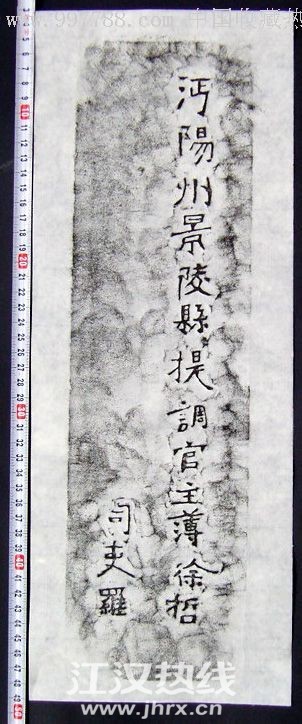 www.997788.com 中国收藏热
沔陽州景陵縣提調官主薄徐哲
司吏羅
江汉热线
www.jhrx.cn